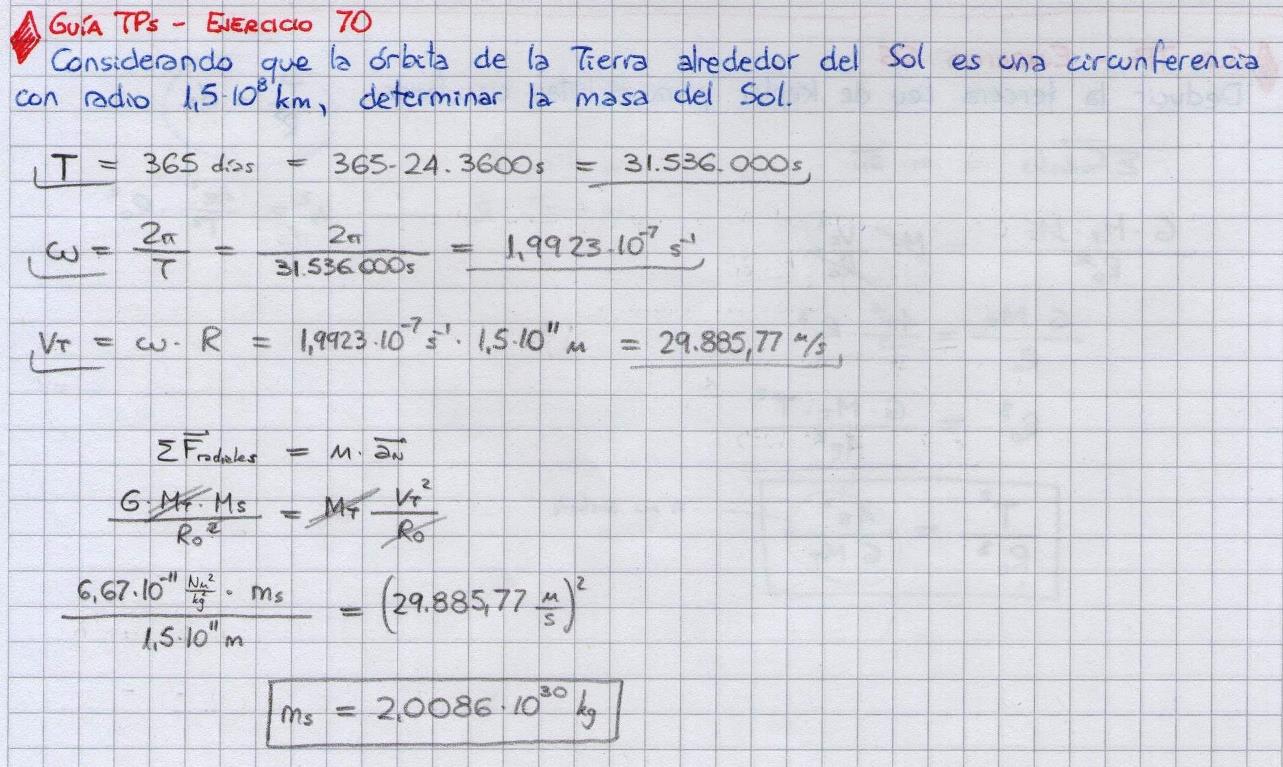 GUÍA TPs - EJERCICIO 70
Considerando que la órbita de la Tierra alrededor del Sol es una circunferencia
con radio 1,5·10⁸ km, determinar la masa del Sol.
T = 365 días = 365·24·3600s = 31.536.000s
ω = 2π/T = 2π/31.536.000s = 1,9923·10⁻⁷ s⁻¹
V_T = ω · R = 1,9923·10⁻⁷ s⁻¹ · 1,5·10¹¹ m = 29.885,77 m/s
ΣF⃗radiales = m · a⃗_N
G · M_T · M_S / R_O² = M_T V_T² / R_O
6,67·10⁻¹¹ Nm²/kg² · m_s / 1,5·10¹¹ m = (29.885,77 m/s)²
m_s = 2,0086·10³⁰ kg